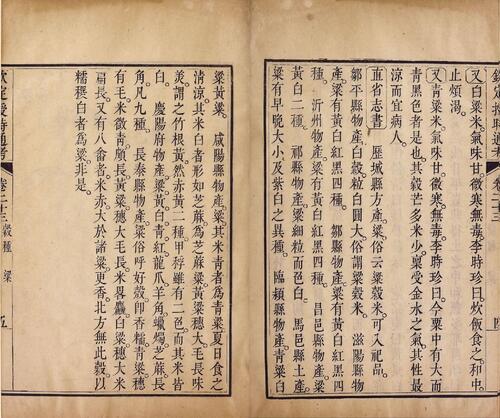 又白粱米氣味甘微寒無毒李時珍曰炊飯食之和中
止煩渴
又青粱米氣味甘微寒無毒李時珍曰今粟中有大而
青黑色者是也其穀芒多米少稟受金水之氣其性最
涼而宜病人
直省志書 歷城縣方產粱俗云粱穀米可入祀品
鄒平縣物產白穀粒白圓大俗謂粱穀米 滋陽縣物
產粱有黃白紅黑四種 鄒縣物產粱有黃白紅四
種 沂州物產粱有黃白紅黑四種 昌邑縣物產粱有
黃白二種 祁縣物產粱細粒而色白 馬邑縣土產
粱有早晚大小及紫白之異種 臨潁縣物產青粱白
粱黃粱 咸陽縣物產粱其米青者為青粱夏日食之
清涼其米白者形如芝蔴為芝蔴粱黃粱穗大毛長味
美謂之竹根黃然赤黃二種甲稃雖有二色而其米皆
白 慶陽府物產粱黃白青紅龍爪羊角蠟燭芝蔴長
角凡九種 長泰縣物產粱俗呼好穀即香糯青粱穗
有毛米微青顱長黃粱穗大毛長米畧麤白粱穗大米
扁長又有八畨者米赤大於諸粱更香北方無此穀以
糯稷白者為粱非是
欽定授時通考 卷二十三 穀種 粱 五